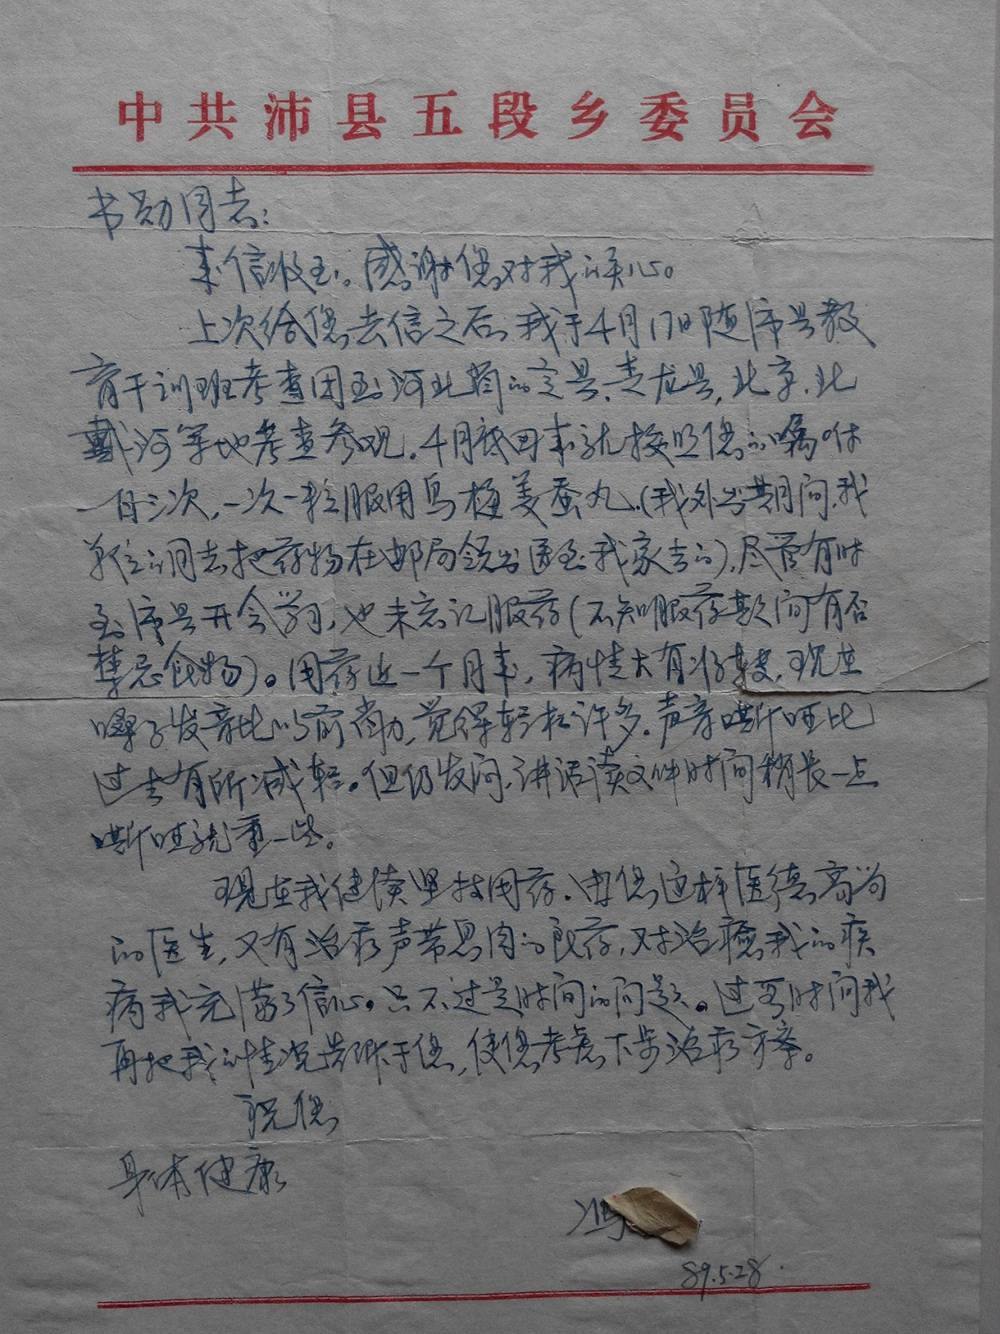 中共沛县五段乡委员会
书勋同志：
来信收到。感谢您对我的关心。
上次给您去信之后，我于4月17日随沛县教
育干训班考查团到河北省的定县、青龙县，北京、北
戴河等地考查参观。4月底回来就按照您的嘱咐
一日三次，一次一粒服用乌梅姜蚕丸（我外出期间，我
单位的同志把药物在邮局领出送到我家去的），尽管有时
到沛县开会学习，也未忘记服药（不知服药期间有否
禁忌食物）。用药近一个月来，病情大有好转，现在
嗓子发音比以前省力，觉得轻松许多。声音嘶哑比
过去有所减轻。但仍发闷，讲话读文件时间稍长一点
嘶哑就重一些。
现在我继续坚持用药。由您这样医德高尚
的医生，又有治疗声带息肉的良药，对治癒我的疾
病我充满了信心。只不过是时间的问题。过段时间我
再把我的情况告诉于您，使您考虑下步治疗方案。
祝您
身体健康
冯
89.5.28.